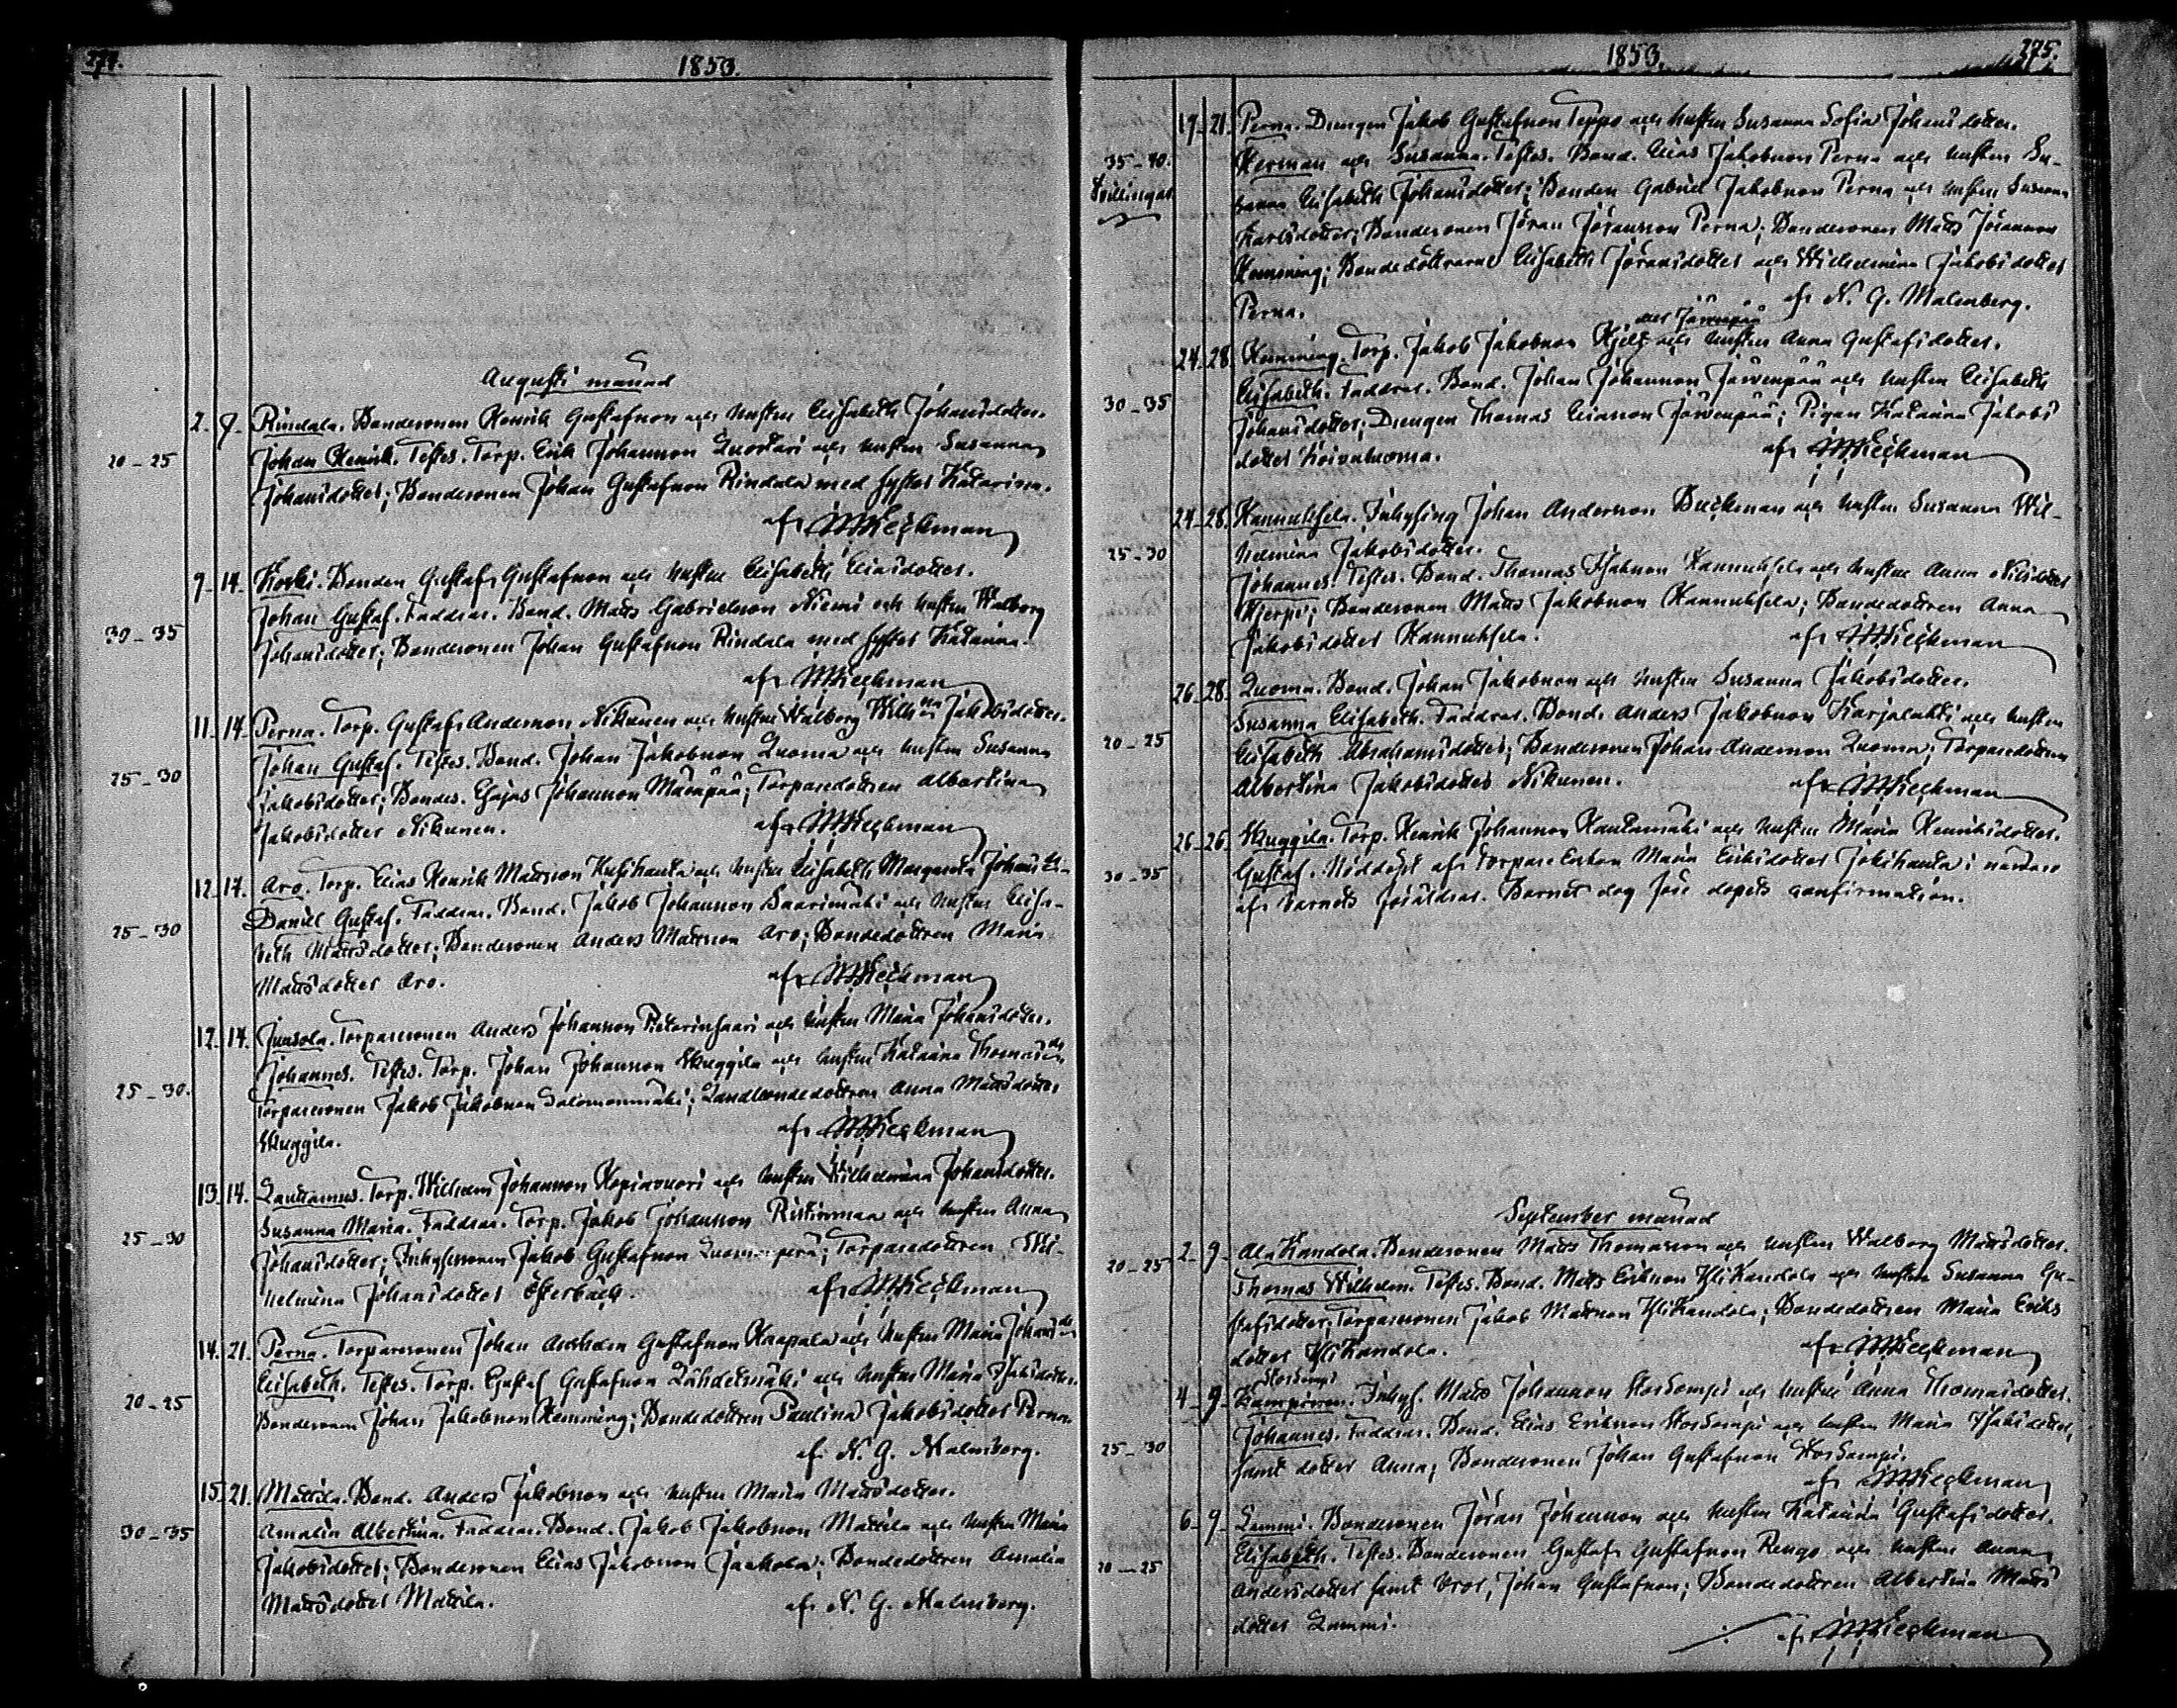 274.
1853.
Augusti månad
2. 7. Rindala. Bondesonen Henrik Gustafsson och hustru Elisabeth Johansdotter.
20-25 Johan Henrik. Testes. Torp. Erik Johansson Luostari och hustru Susanna
Johansdotter; Bondesonen Johan Gustafsson Rindala med syster Katarina.
af
9. 14. Koski. Bonden Gustaf Gustafsson och hustru Elisabeth Eliasdotter.
30-35 Johan Gustaf. Faddrar. Bond. Matts Gabrielsson Niemi och hustru Walborg
Johansdotter; Bondesonen Johan Gustafsson Rindala med syster Katarina.
af
11. 14. Perna. Torp. Gustaf Andersson Nikunen och hustru Walborg Wilhna Jakobsdotter.
25-30 Johan Gustaf. Testes. Bond. Johan Jakobsson Luoma och hustru Susanna
Jakobsdotter; Bondes. Esajas Johansson Mäenpää; Torparedottren Albertina
Jakobsdotter Nikunen. af
12. 17. Aro. Torp. Elias Henrik Mattsson och hustru Elisabeth Margareta Johansd:r
25-30 Daniel Gustaf. Faddrar. Bond. Jakob Johansson Saarimäki och hustru Elisa-
beth Mattsdotter; Bondesonen Anders Mattsson Aro; Bondedottren Maria
Mattsdotter Aro. af
12. 14. Juusola. Torparesonen Anders Johansson Pietarinsaari och hustru Maria Johansdotter.
25-30. Johannes. Testes. Torp. Johan Johansson Skuggila och hustru Katarina Thomasdr
Torparesonen Jakob Jakobsson Salomonmäki; Landbondedottren Anna Mattsdotter
Skuggila. af
13. 14. Lautamus. Torp. Wilhelm Johansson Kopinvuori och hustru Wilhelmina Johansdotter.
25-30 Susanna Maria. Faddrar. Torp. Jakob Johansson och hustru Anna
Johansdotter; Inhysesonen Jakob Gustafsson Luomanperä; Torparedottren Wil-
helmina Johansdotter Österback. af
14. 21. Perna. Torparesonen Johan Anshelm Gustafsson Knapala och hustru Maria Johansdr
20-25 Elisabeth. Testes. Torp. Gustaf Gustafsson Lähdetmäki och hustru Maria Isaksdotter.
Bondesonen Johan Jakobsson Hemming; Bondedottren Paulina Jakobsdotter Perna.
af N. G. Malmberg.
15. 21. Mattila. Bond. Anders Jakobsson och hustru Maria Mattsdotter.
30-35 Amalia Albertina. Faddrar. Bond. Jakob Jakobsson Mattila och hustru Maria
Jakobsdotter; Bondesonen Elias Jakobsson Jaakola; Bondedottren Amalia
Mattsdotter Mattila. af N. G. Malmberg.
1853.
275.
19. 21. Perna. Drengen Jakob Gustafsson Teppo och hustru Susanna Sofia Johansdotter.
35-40. Herman och Susanna. Testes. Bond. Elias Jakobsson Perna och hustru Su-
Tvillingar sanna Elisabeth Johansdotter; Bonden Gabriel Jakobsson Perna och hustru Susanna
Karlsdotter; Bondesonen Jöran Jöransson Perna; Bondesonen Matts Jöransson
Hemming; Bondedöttrarne Elisabeth Jöransdotter och Wilhelmina Jakobsdotter
Perna. af N. G. Malmberg.
eller Järvenpää
24. 28. Hemming. Torp. Jakob Jakobsson Hjelt och hustru Anna Gustafsdotter.
30-35 Elisabeth. Faddrar. Bond. Johan Johansson Järvenpää och hustru Elisabeth
Johansdotter; Drengen Thomas Eliasson Järvenpää; Pigan Katarina Jakobs
dotter Koivuluoma. af
24. 28. Kannuksela. Inhysing Johan Andersson Backman och hustru Susanna Wil-
25-30 helmina Jakobsdotter.
Johannes. Testes. Bond. Thomas Isaksson Kannuksela och hustru Anna Nilsdotter
Hjerpe; Bondesonen Matts Jakobsson Kannuksela; Bondedottren Anna
Jakobsdotter Kannuksela. af
26. 28. Luoma. Bond. Johan Jakobsson och hustru Susanna Jakobsdotter.
20-25 Susanna Elisabeth. Faddrar. Bond. Anders Jakobsson Karjalahti och hustru
Elisabeth Abrahamsdotter; Bondesonen Johan Andersson Luoma; Torparedottren
Albertina Jakobsdotter Nikunen. af
26. 26. Skuggila. Torp. Henrik Johansson Hautamäki och hustru Maria Henriksdotter.
30-35 Gustaf. Nöddöpt af torpare Enkan Maria Eriksdotter Jokihauta i närvaro
af barnets föräldrar. Barnet dog före dopets confirmation.
September månad
2. 9. Ala Kandola. Bondesonen Matts Thomasson och hustru Walborg Mattsdotter.
20-25 Thomas Wilhelm. Testes. Bond. Matts Eriksson Ylikandola och hustru Susanna Gu-
stafsdotter; Torparesonen Jakob Mattsson Ylikandola; Bondedottren Maria Eriks
dotter Ylikandola. af
Storkompi
4. 9. Kampinen. Inhys. Matts Johansson Storkampi och hustru Anna Thomasdotter.
25-30 Johannes. Faddrar. Bond. Elias Eriksson Storkampi och hustru Maria Isaksdotter,
samt dotter Anna; Bondesonen Johan Gustafsson Storkampi.
af
6. 9. Lammi. Bondesonen Jöran Johansson och hustru Katarina Gustafsdotter.
20-25 Elisabeth. Testes. Bondesonen Gustaf Gustafsson Rengo och hustru Anna
Andersdotter samt bror, Johan Gustafsson; Bondedottren Albertina Matts
dotter Lammi.
af